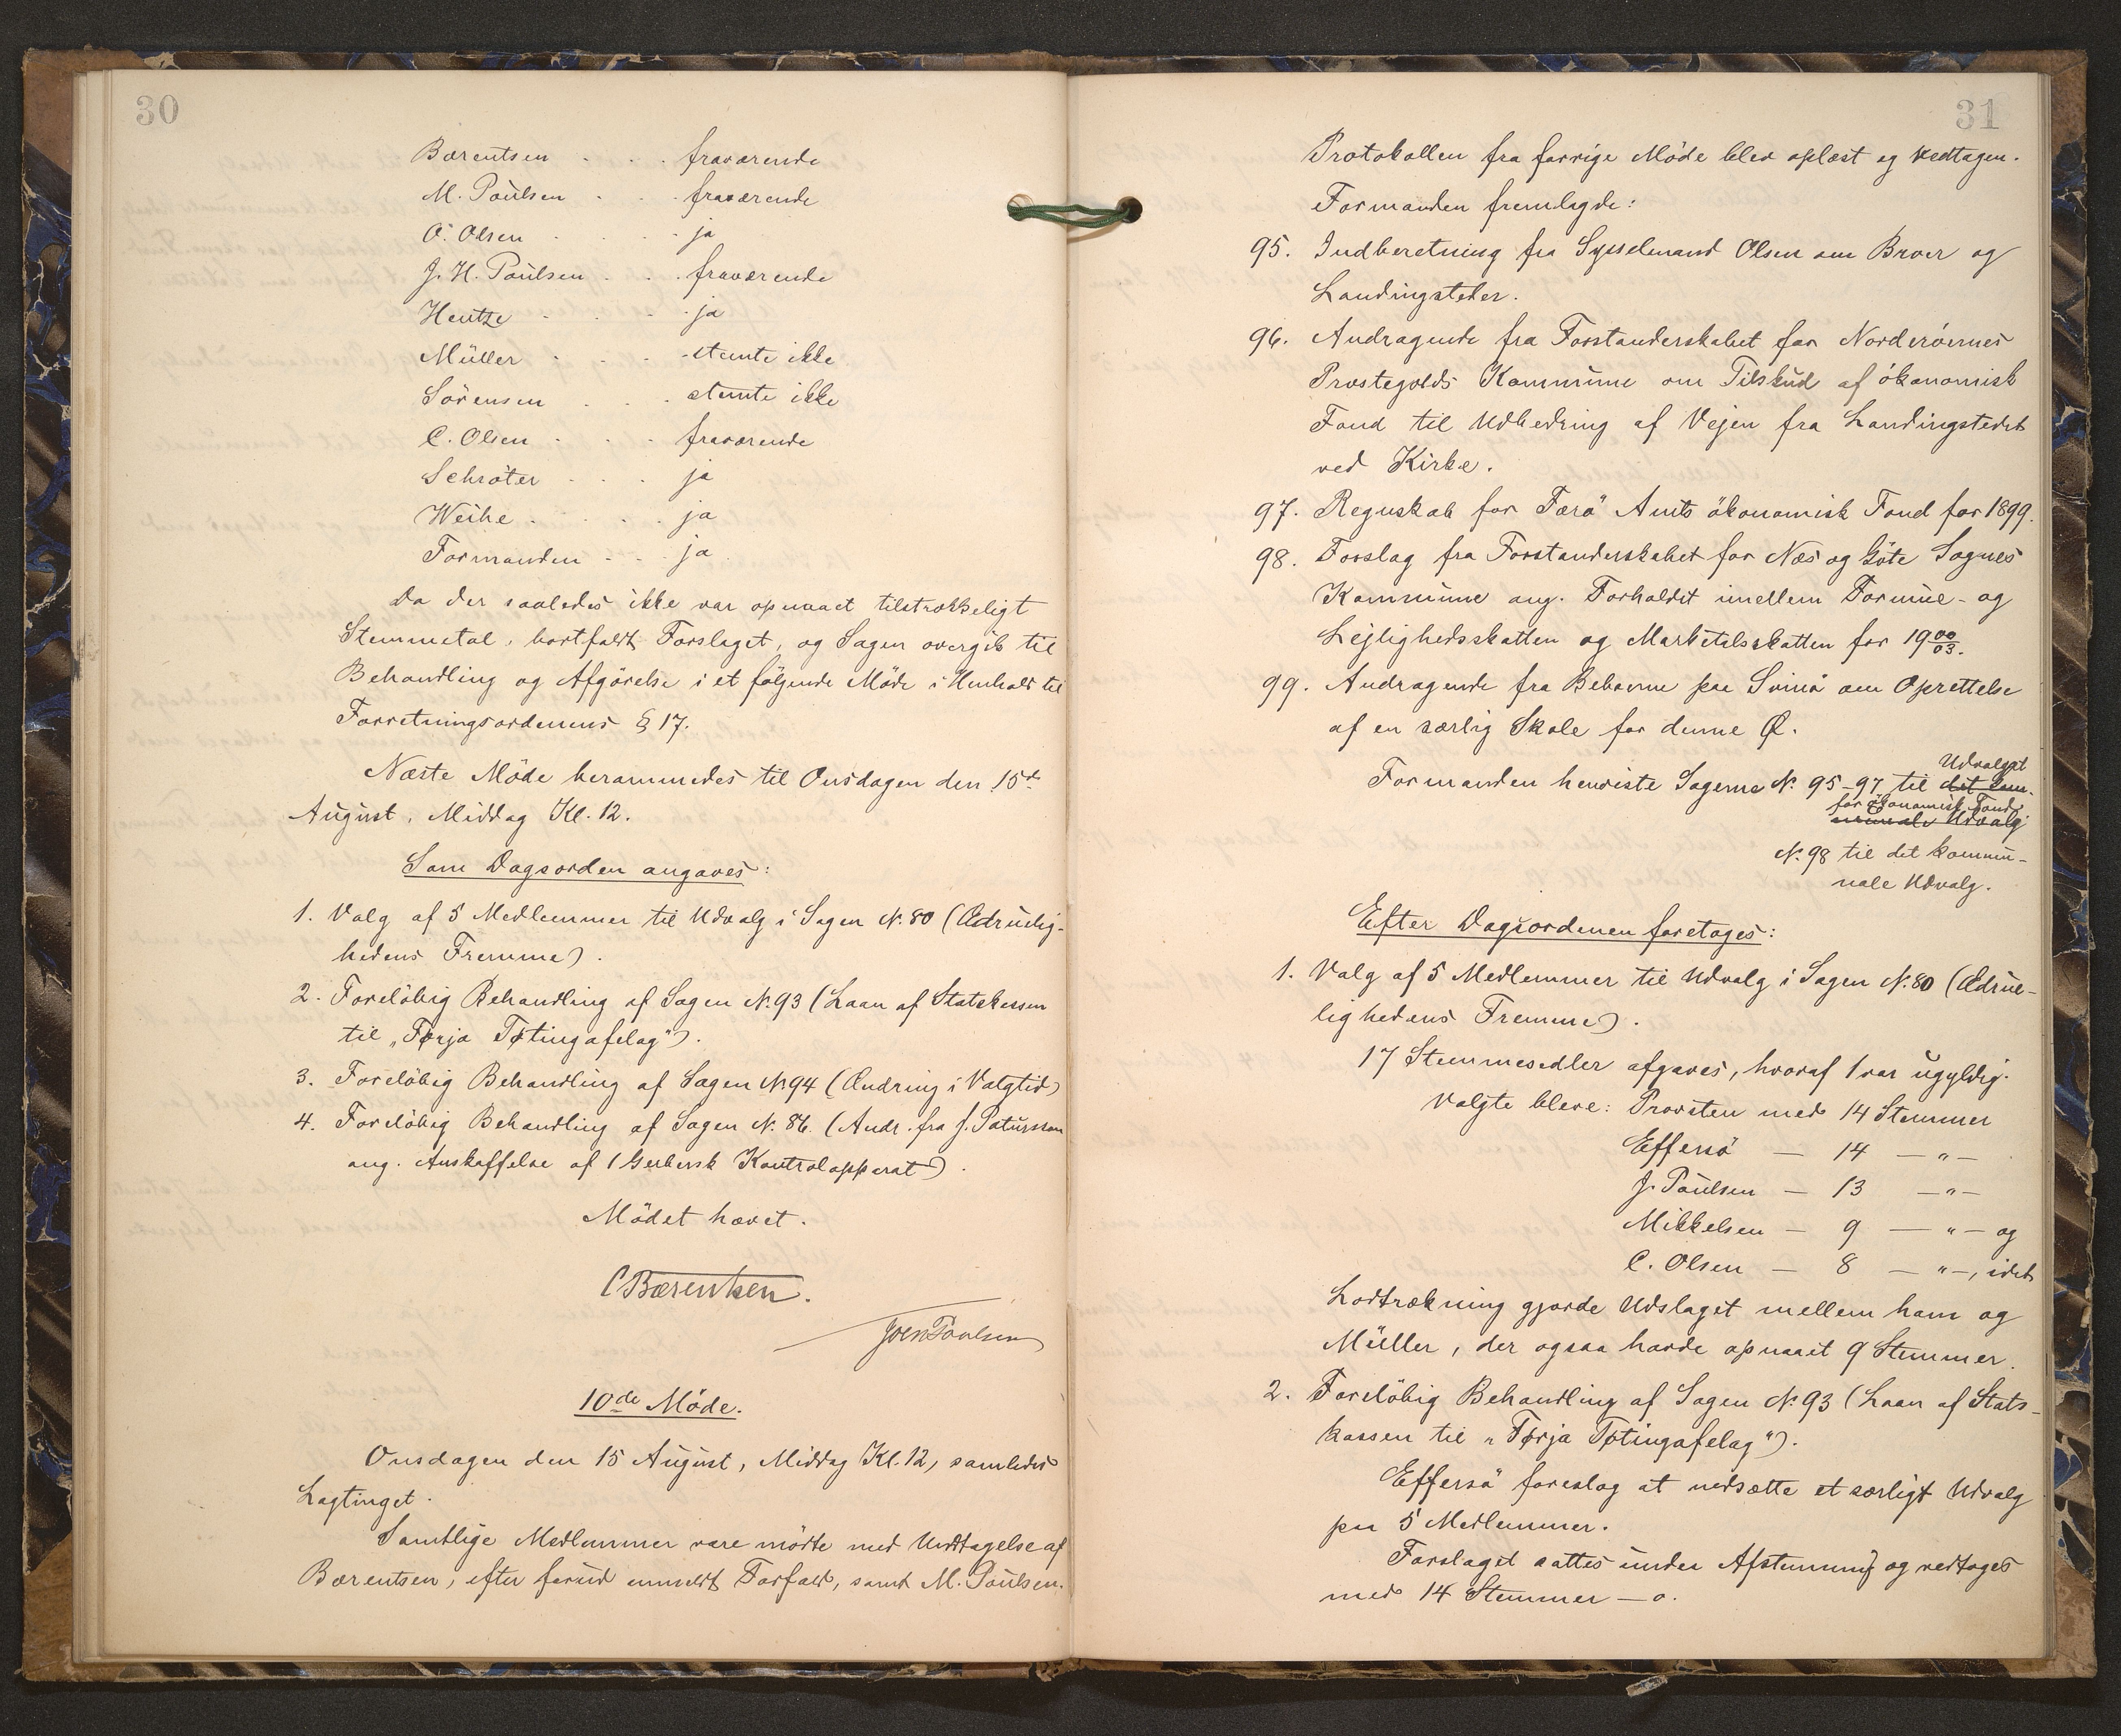 30
Bærentsen - - - fraværende
M. Poulsen - - - fraværende
O. Olsen - - - - ja
J. H. Poulsen - - - fraværende
Hentze - - - - ja
Müller - - - - stemte ikke
Sörensen - - - stemte ikke
C. Olsen - - - fraværende
Schröter - - - ja
Weihe - - - - ja
Formanden - - - ja
Da der saaledes ikke var opnaaet tilstrækkeligt
Stemmetal, bortfaldt Forslaget, og Sagen overgik til
Behandling og Afgörelse i et fölgende Möde i Henhold til
Forretningsordenens § 17.
Næste Möde berammedes til Onsdagen den 15de
August, Middag Kl. 12.
Som Dagsorden angaves:
1. Valg af 5 Medlemmer til Udvalg i Sagen N. 80 (Ædruelig-
hedens Fremme).
2. Forelöbig Behandling af Sagen N. 93 (Laan af Statskassen
til „Førja Tøtingafelag").
3. Forelöbig Behandling af Sagen N. 94 (Ændring i Valgtid)
4. Forelöbig Behandling af Sagen N. 86. (Andr. fra J. Patursson
ang. Anskaffelse af 1 Gerbersk Kontrolapparat).
Mödet hævet.
C Bærentsen.
Joen Poulsen
10de Möde.
Onsdagen den 15 August, Middag Kl. 12, samledes
Lagtinget.
Samtlige Medlemmer vare mödte med Undtagelse af
Bærentsen, efter forud anmeldt Forfald, samt M. Poulsen.
31
Protokollen fra forrige Möde blev oplæst og vedtagen.
Formanden fremlagde:
95. Indberetning fra Sysselmand Olsen om Broer og
Landingsteder.
96. Andragende fra Forstanderskabet for Norderöernes
Præstegjelds Kommune om Tilskud af ökonomisk
Fond til Udbedring af Vejen fra Landingstedet
ved Kirke.
97. Regnskab for Færö Amts ökonomisk Fond for 1899.
98. Forslag fra Forstanderskabet for Næs og Göte Sognes
Kommune ang. Forholdet imellem Formue- og
Lejlighedsskatten og Marketalsskatten for 1900/03.
99. Andragende fra Beboerne paa Svinö om Oprettelse
af en særlig Skole for denne Ø.
Udvalget
Formanden henviste Sagerne N. 95-97 til det kom-
for ökonomisk Fond,
munale Udvalg
N. 98 til det kommu-
nale Udvalg.
Efter Dagsordenen foretoges:
1. Valg af 5 Medlemmer til Udvalg i Sagen N. 80 (Ædrue-
lighedens Fremme).
17 Stemmesedler afgaves, hvoraf 1 var ugyldig.
Valgte bleve: Provsten med 14 Stemmer
Effersö — 14 — „ —
J. Poulsen — 13 — „ —
Mikkelsen — 9 — „ — og
C. Olsen — 8 — „ —, idet
Lodtrækning gjorde Udslaget mellem ham og
Müller, der ogsaa havde opnaaet 9 Stemmer.
2. Forelöbig Behandling af Sagen N. 93 (Laan af Stats-
kassen til „Førja Tøtingafelag").
Effersö foreslog at nedsætte et særligt Udvalg
paa 5 Medlemmer.
Forslaget sattes under Afstemning og vedtoges
med 14 Stemmer — o.